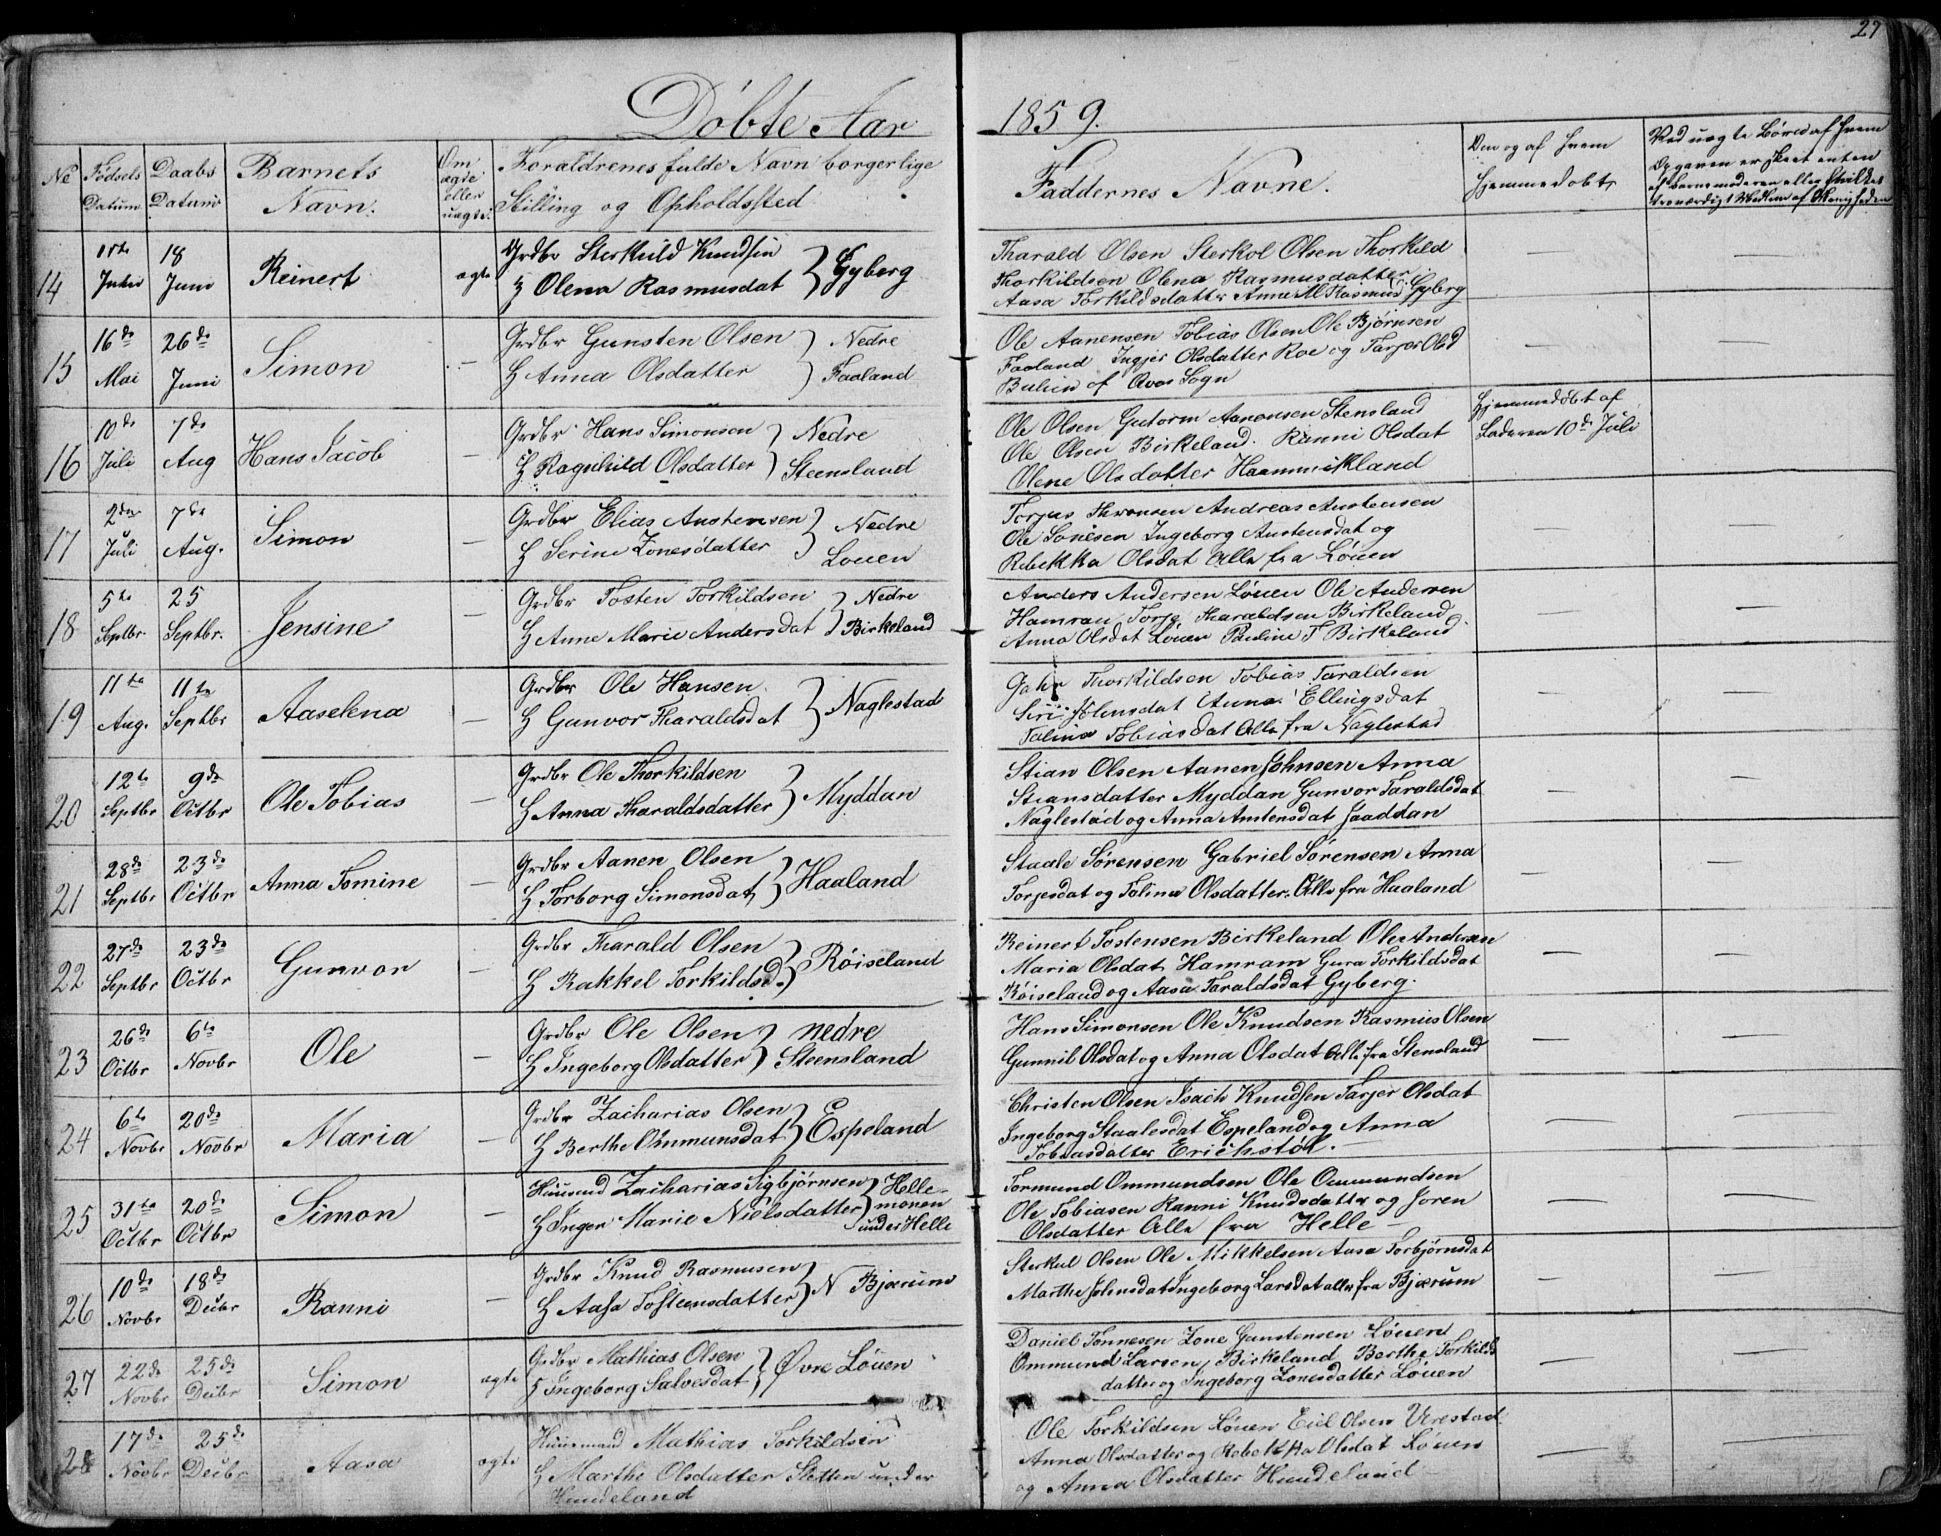 27
Döbte Aar 1859.
No Fødsels Datum Daabs Datum Barnets Navn. Om ægte eller uægte. Foraldrenes fulde Navn borgerlige Stilling og Opholdssted Faddernes Navne. og af hvem hjemmedøbt Ved uægte Børn af hvem Opgaven er skeet enten af barnemoderen eller Medlem af Menigheden
14 Juni 18 Juni Reinert ægte Grdbr Sterkuld Knudsen H Olena Rasmusdat } Gyberg
Tharald Olsen Sterkol Olsen Thorkild
Thorkildsen Olena Rasmusdatter
Aasa Torkildsdatter Anne M Rasmus Gyberg
15 16de Mai 26de Juni Simon — Grdbr Gunsten Olsen H Anna Olsdatter } Nedre Faaland
Ole Aanensen Tobias Olsen Ole Bjørnsen
Faaland Ingjer Olsdatter Roe og Tarjer Olsd
af Qvas Sogn
16 10de Juli 7de Aug Hans Jacob — Grdbr Hans Simonsen H Ragnhild Olsdatter } Nedre Steensland
Ole Olsen Gutorm Aanensen Stensland
Ole Olsen Birkeland. Ranni Olsdat
Olene Olsdatter
Hjemmedøbt af
10de Juli
17 2den Juli 7de Aug. Simon — Grdbr Elias Austensen H Serine Zonesdatter } Nedre Louen
Torjus Andreas Austensen
Ole Ingeborg Austensdat og
Rebekka Olsdat Alle fra Löuen
18 5te Septbr 25 Septbr. Jensine — Grdbr Tosten Torkildsen H Anne Marie Andersdat } Nedre Birkeland
Anders Andersen Löuen Ole Andersen
Hamran Torje Tharaldsen Birkeland
Anna Olsdat Löuen Pauline T Birkeland
19 11te Aug. 11te Septbr Aaselena — Grdbr Ole Hansen H Gunvor Tharaldsdat } Naglestad
Thorkildsen Tobias Taraldsen
Siri Johnsdat Anna Ellingsdat
Talina Tobiasdat Alle fra Naglestad
20 12te Septbr 9de Octbr Ole Tobias — Grdbr Ole Thorkildsen H Anna Tharaldsdatter } Myddan
Stian Olsen Aanen Johnsen Anna
Stiansdatter Myddan Gunvor Taraldsdat
Naglestad og Anna Austensdat
21 28de Septbr 23de Octbr Anna Tomine — Grdbr Aanen Olsen H Torborg Simonsdat } Haaland
Staale Sørensen Gabriel Sørensen Anna
Torjesdat og Talina Olsdatter. Alle fra Haaland
22 27de Septbr 23de Octbr Gunvor — Grdbr Tharald Olsen H Rakkel Torkildsd. } Röiseland
Reinert Tostensen Birkeland Ole Andersen
Maria Olsdat Hamram Gura Torkildsdat
Röiseland og Aasa Taraldsdat Gyberg.
23 26de Octbr 6te Novbr Ole — Grdbr Ole Olsen H Ingeborg Olsdatter } nedre Steensland
Hans Simonsen Ole Knudsen Rasmus Olsen
Gunnil Olsdat og Anna Olsdat Alle fra Stensland
24 6te Novbr 20de Novbr Maria — Grdbr Zacharias Olsen H Berthe Ommunsdat } Espeland
Christen Olsen Isach Knudsen Tarjer Olsdat
Ingeborg Staalesdat Espeland og Anna
Tobiasdatter Erichstöl.
25 31te Octbr 20de Octbr Simon — Huusmd Zacharias Sigbjørnsen H Inger Marie Nielsdatter } Hellemonen under Helle
Tormund Ommundsen Ole Ommundsen
Ole Tobiasen Ranni Knudsdatter og Joren
Olsdatter Alle fra Helle
26 10de Novbr 18de Decbr Ranni — Grdbr Knud Rasmusen H Aasa Tosteensdatter } N Bjærum
Sterkul Olsen Ole Mikkelsen Aasa Torbjørnsdat
Marthe Johnsdat Ingeborg Larsdat alle fra Bjærum
27 22de Novbr 25de Decbr Simon ægte Grdbr Mathias Olsen H Ingeborg Salvesdat } Øvre Löuen
Daniel Tønnesen Zone Gunstensen Löuen
Ommund Larsen Birkeland Berthe Torkilds
datter og Ingeborg Zonesdatter Löuen
28 17de Novbr 25de Decbr Aasa ægte Huusmand Mathias Torkildsen H Marthe Olsdatter Sletten under Hundeland
Ole Torkildsen Löuen Eiel Olsen Verestad
Anna Olsdatter og Rebekka Olsdat Löuen
og Anna Olsdatter Hundeland